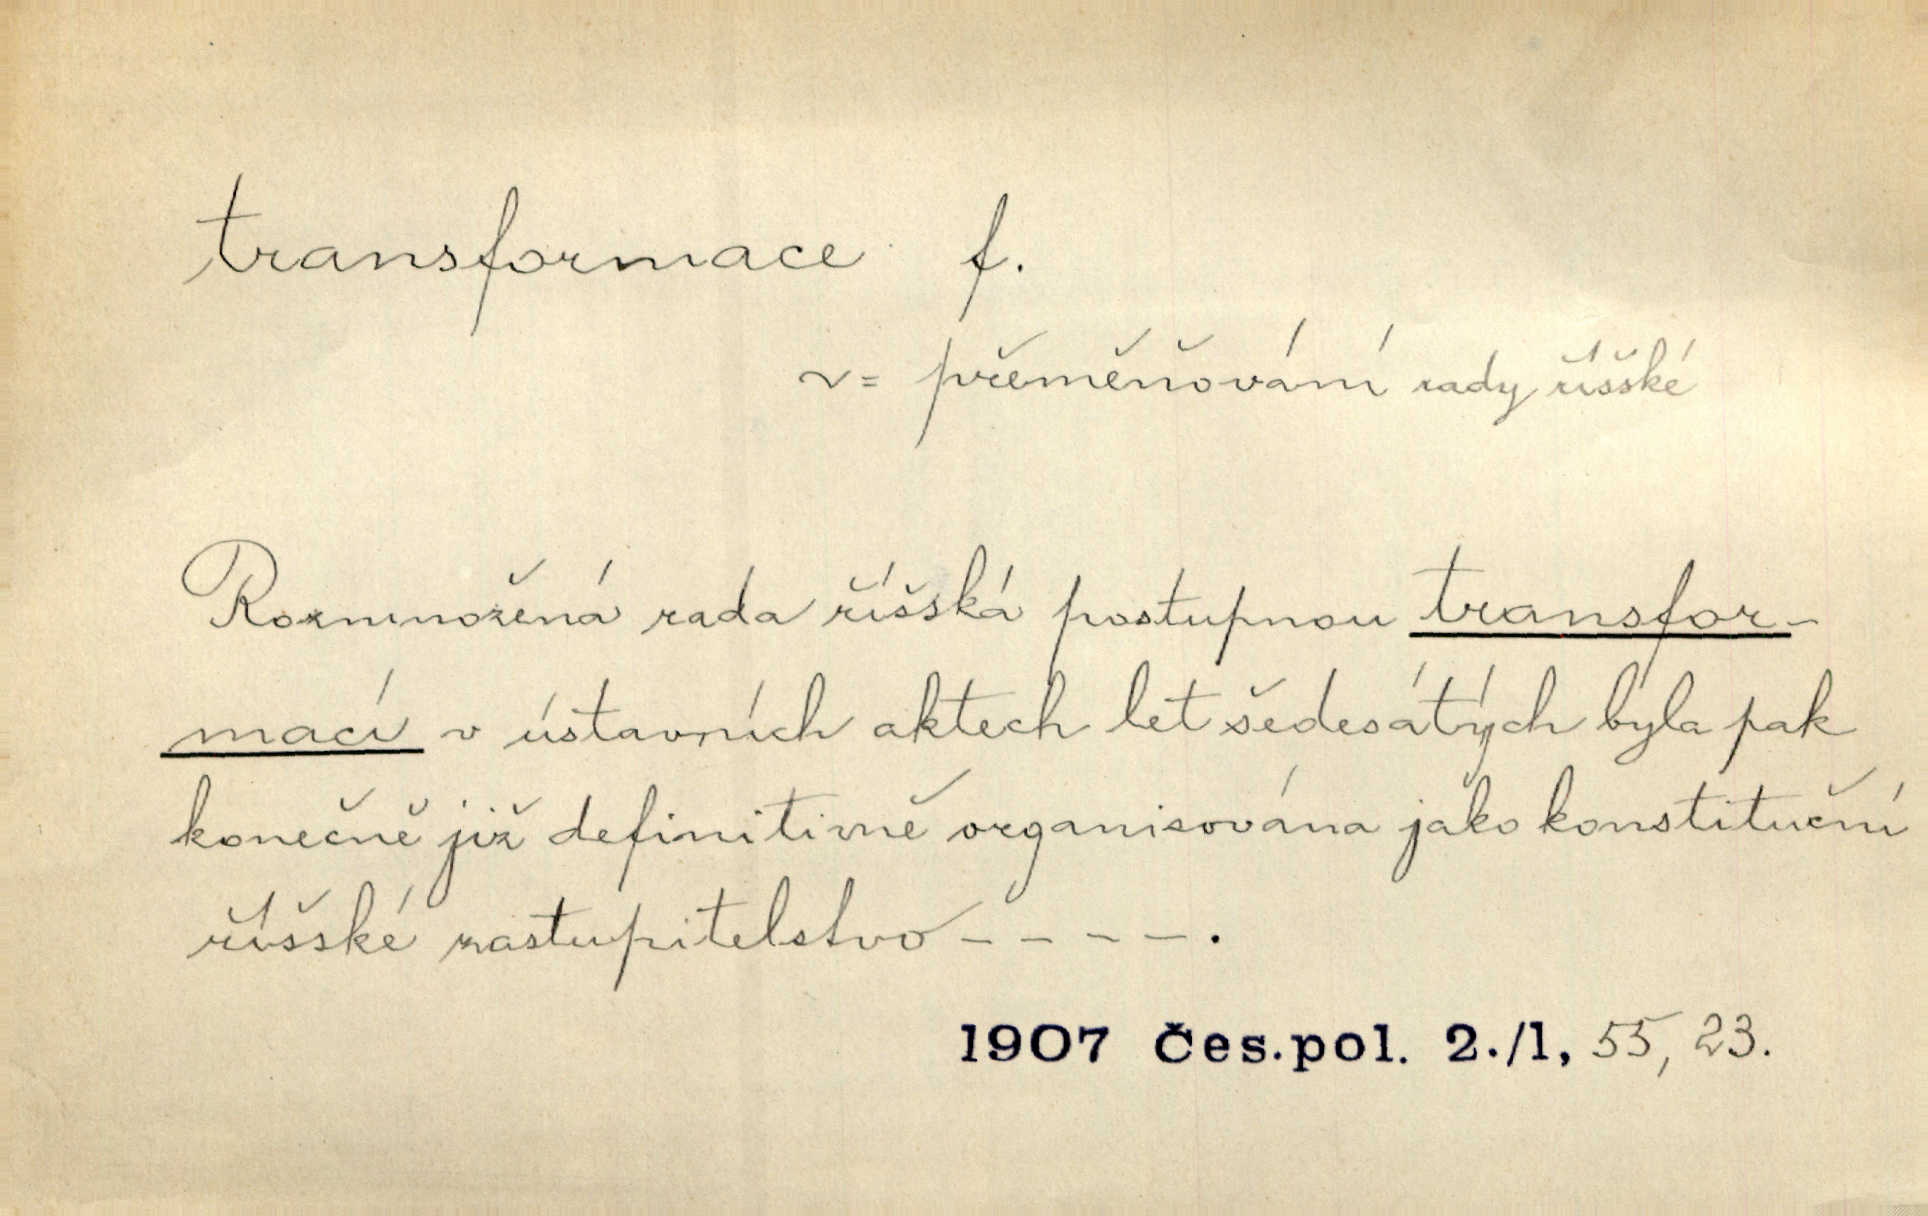 transformace f.
~ = přeměňování rady říšské
Rozmnožená rada říšská postupnou transfor-
mací v ústavních aktech let šedesátých byla pak
konečně již definitivně organisována jako konstituční
říšské zastupitelstvo - - - - .
1907 Čes.pol. 2./1, 55, 23.